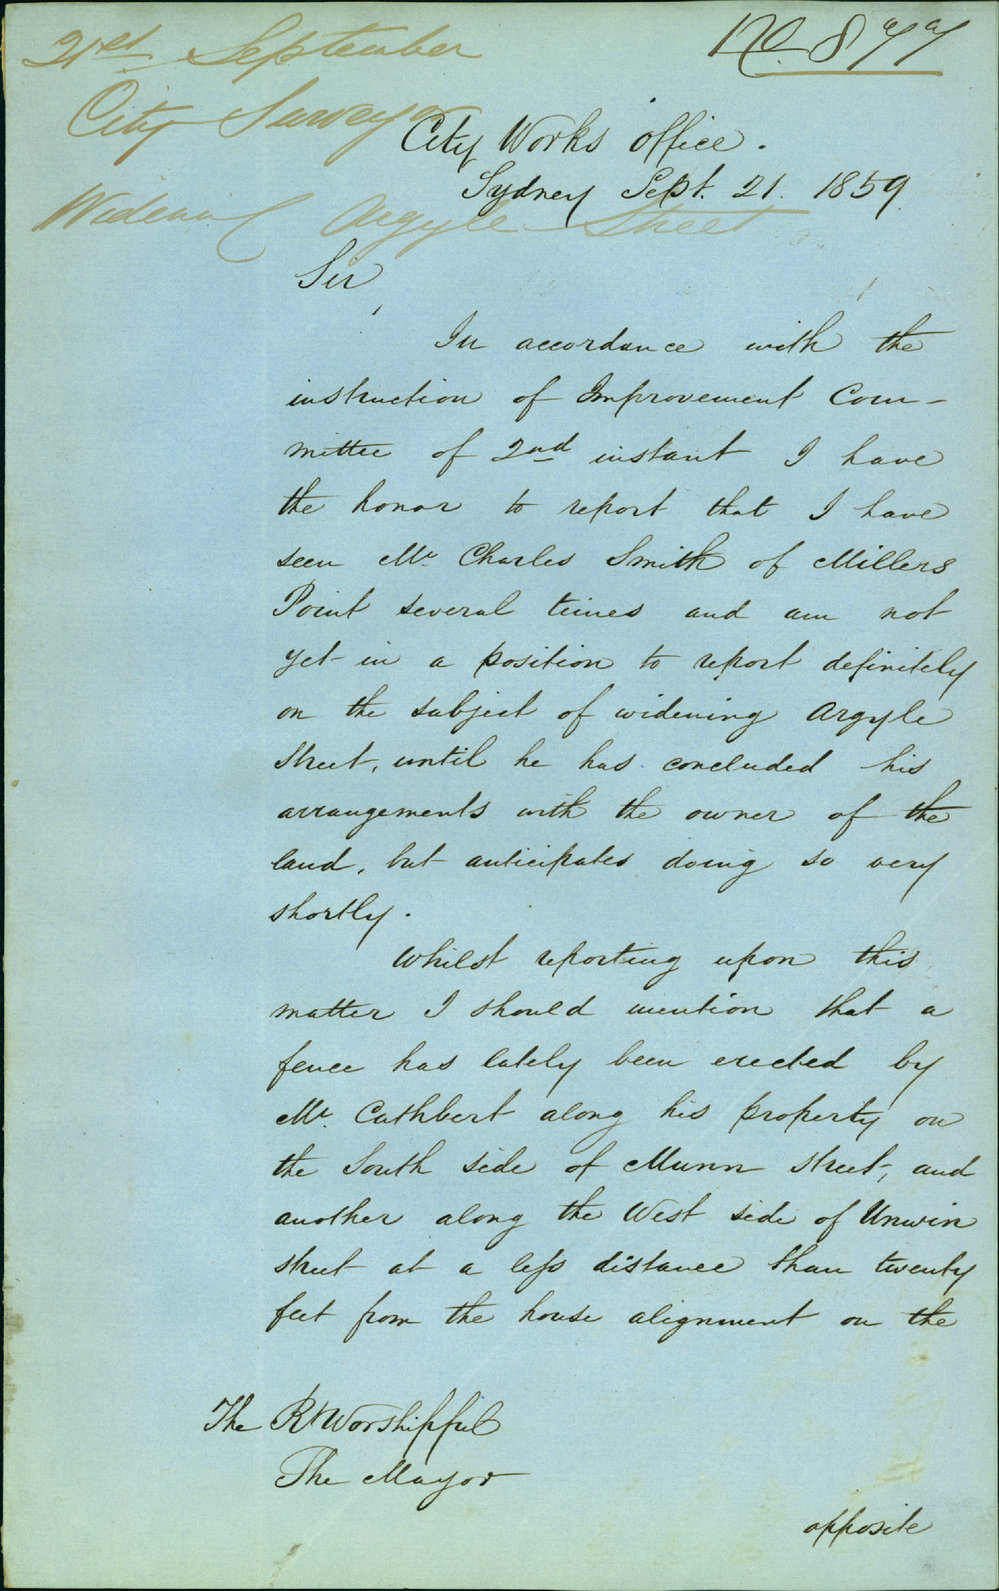 21st September
No. 877
City Surveyor
City Works Office.
Sydney Sept. 21. 1859
Widening Argyle Street
Sir
In accordance with the
instruction of Improvement Com-
mittee of 2nd instant I have
the honor to report that I have
seen Mr. Charles Smith of Millers
Point several times and am not
yet in a position to report definitely
on the subject of widening Argyle
Street, until he has concluded his
arrangements with the owner of the
land, but anticipates doing so very
shortly.
Whilst reporting upon this
matter I should mention that a
fence has lately been erected by
Mr. Cuthbert along his property on
the South side of Munn Street, and
another along the West side of Unwin
street at a less distance than twenty
feet from the house alignment on the
The Rt Worshipful
The Mayor
opposite